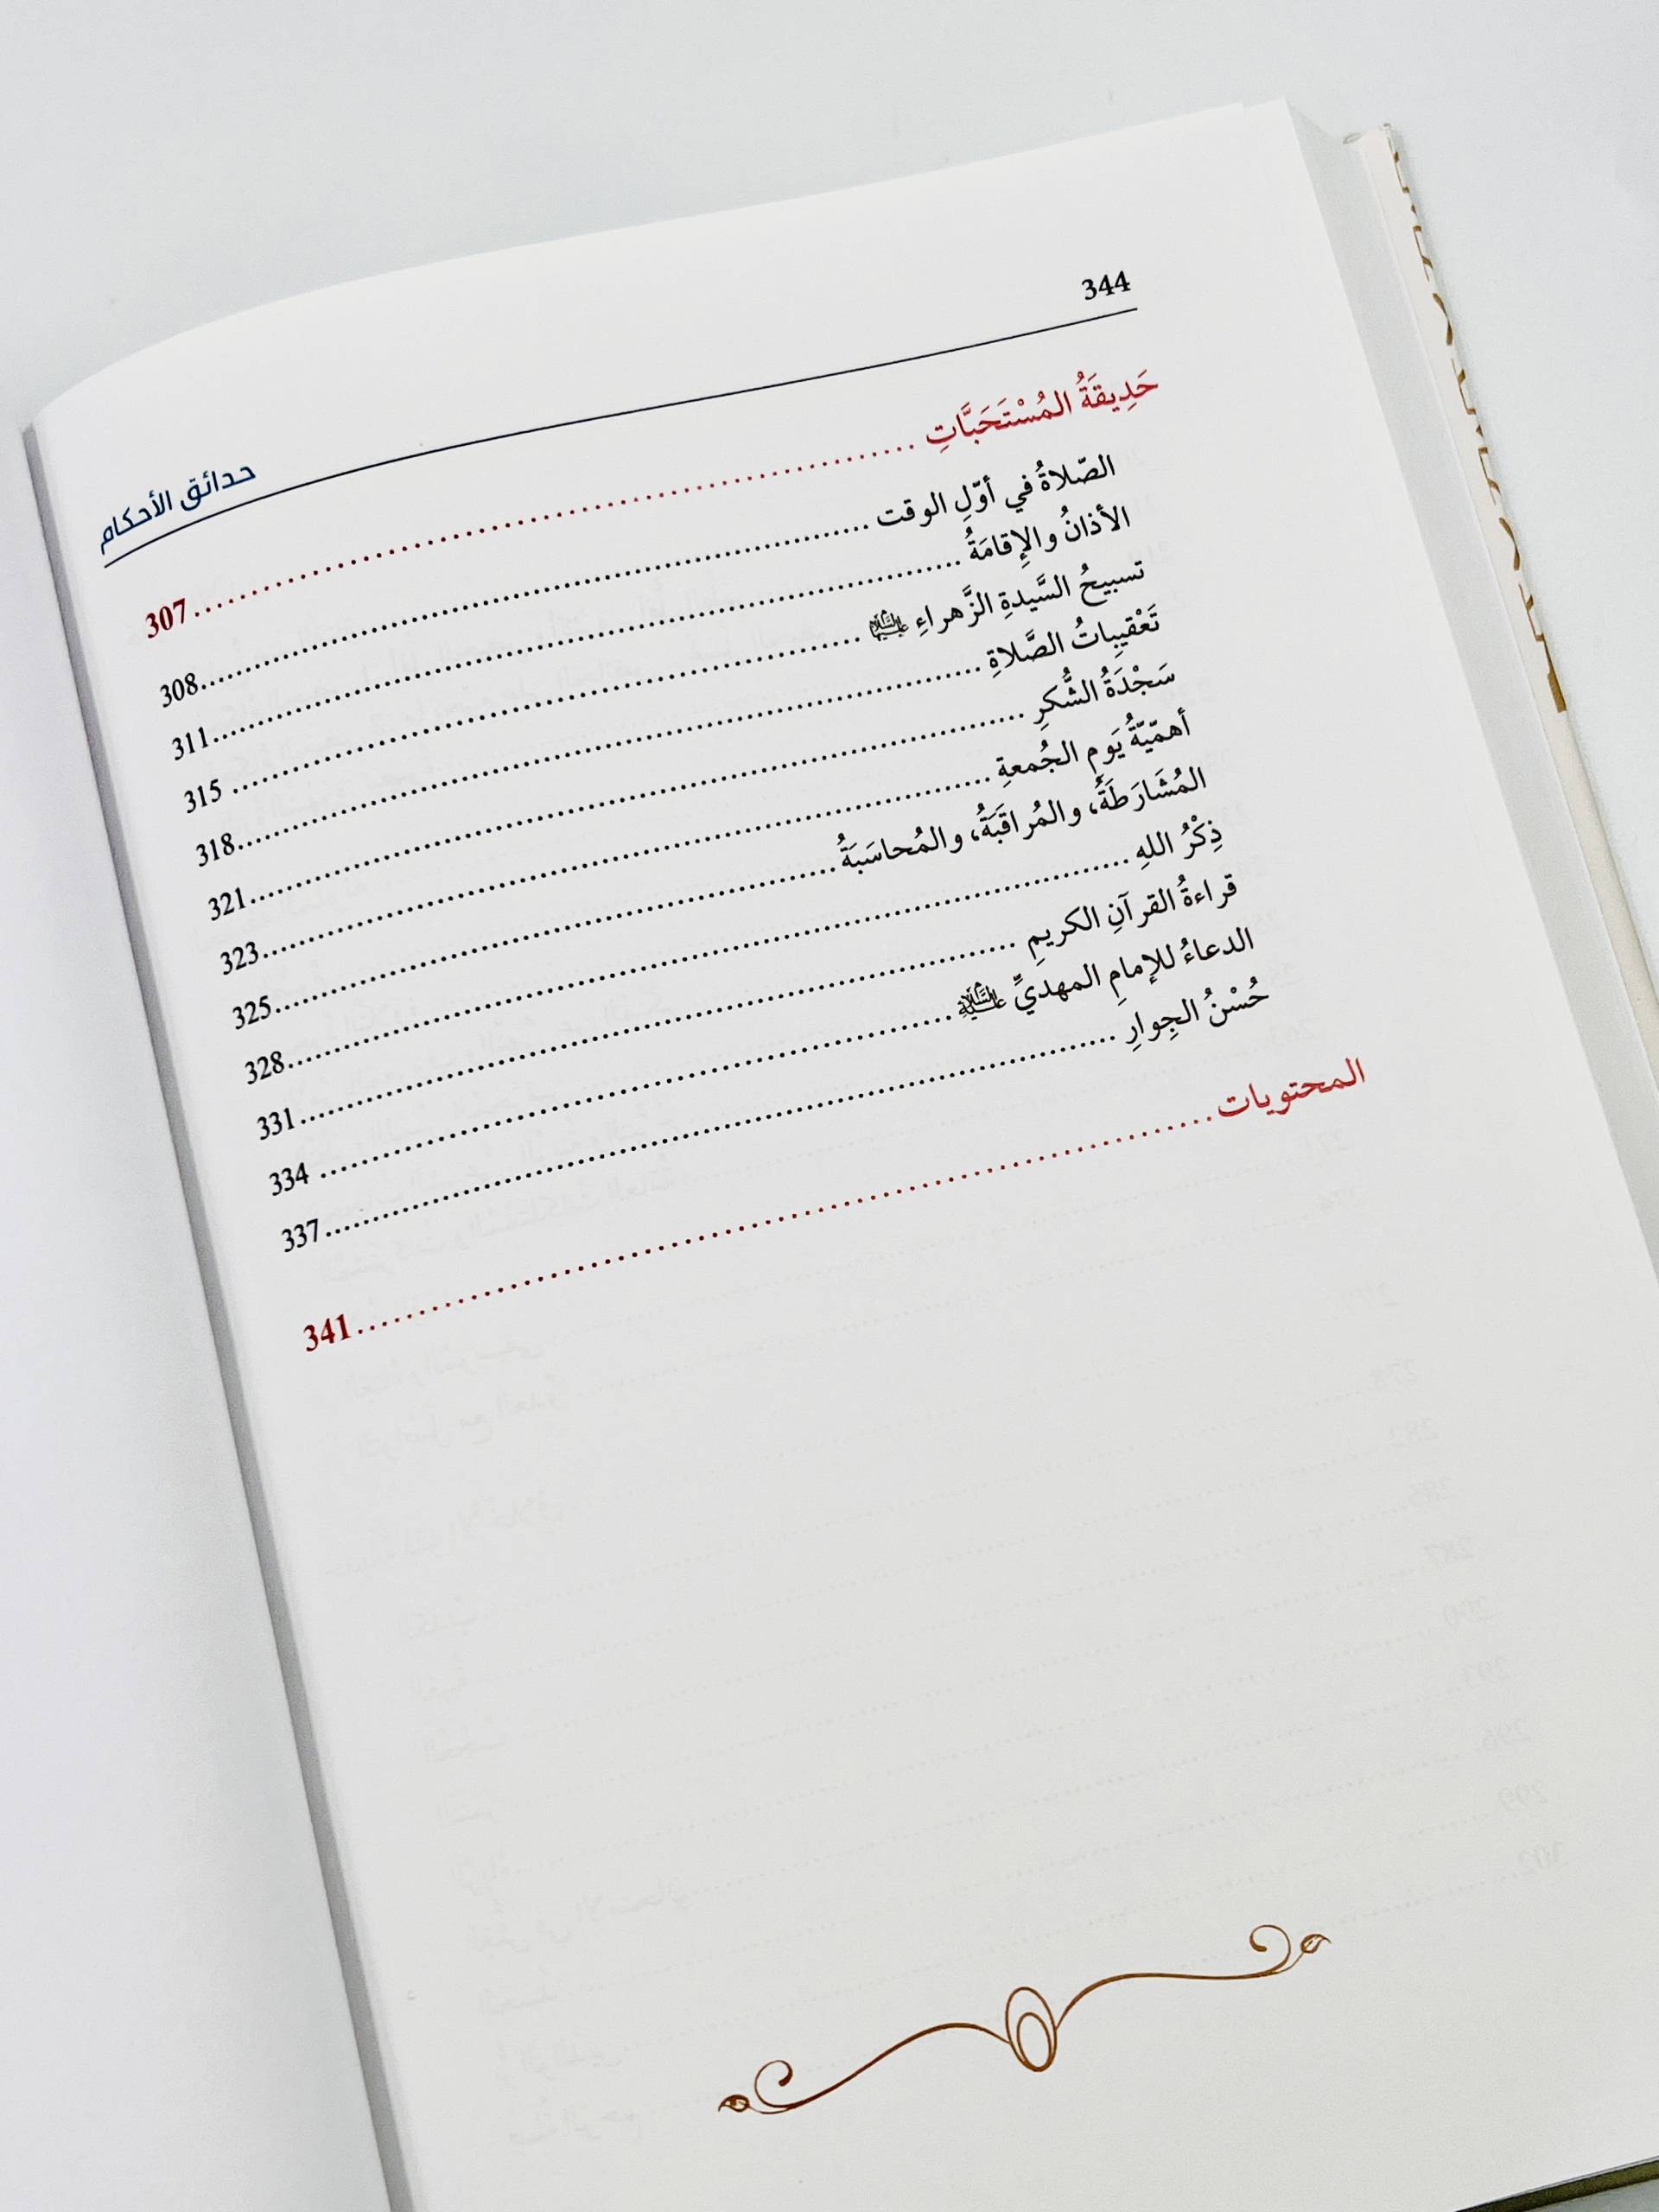 344
حدائق الأحكام
حَدِيقَةُ المُسْتَحَبَّاتِ ........ 307
الصّلاةُ في أوّلِ الوقت ........ 308
الأذانُ والإقامَةُ ........ 311
تسبيحُ السَّيدةِ الزَّهراءِ عليها السلام ........ 315
تَعْقيِباتُ الصَّلاةِ ........ 318
سَجْدَةُ الشُّكرِ ........ 321
أهمّيّةُ يَومِ الجُمعةِ ........ 323
المُشَارَطَةُ، والمُراقَبَةُ، والمُحاسَبَةُ ........ 325
ذِكْرُ اللهِ ........ 328
قراءةُ القرآنِ الكريمِ ........ 331
الدعاءُ للإمامِ المهديِّ عليه السلام ........ 334
حُسْنُ الجِوارِ ........ 337
المحتويات ........ 341